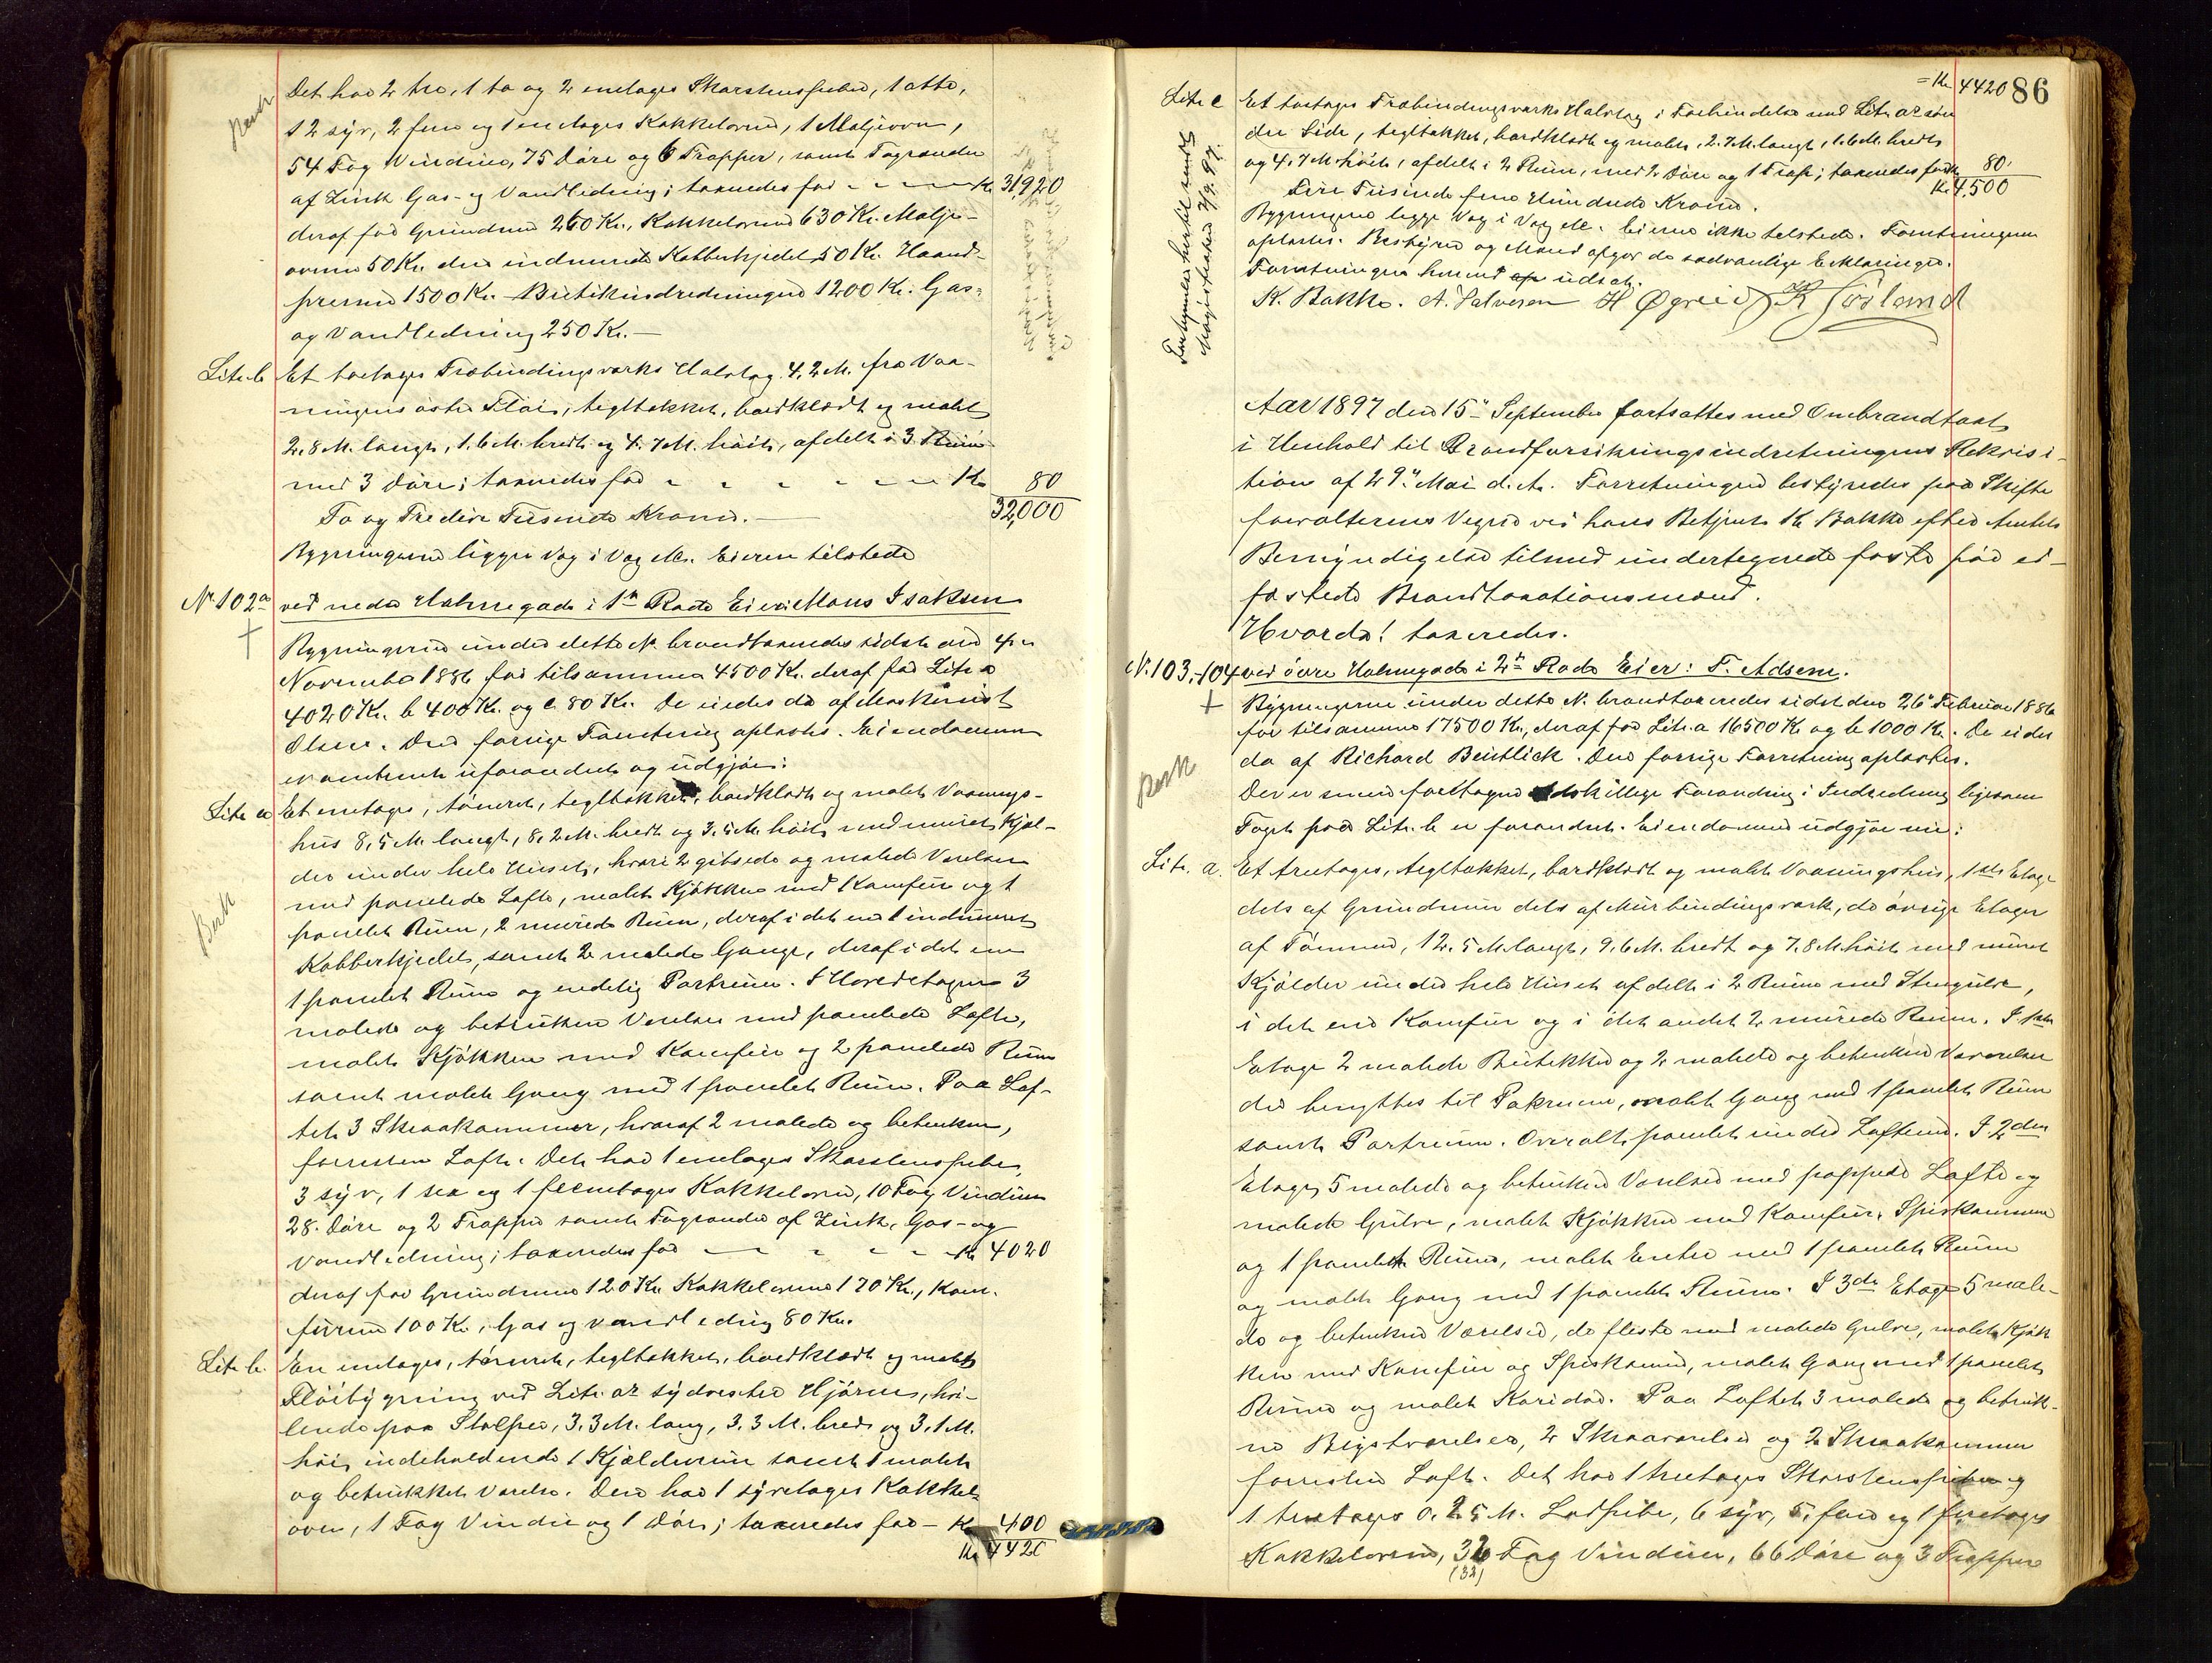 Det har 2 tre, 1 to og 2 enetages Skorstenspiber, 1 otte,
12 syv, 2 fem og 1 enetages Kakkelovne, 1 Maljeovn,
54 Fag Vinduer, 75 Døre og 6 Trapper, samt Tagrender
af Zink Gas- og Vandledning; taxeredes for - - - Kr. 31920
deraf for Grunden 260 Kr., Kakkelovne 630 Kr. Malje-
ovnen 50 Kr. den indmurede Kobberkjedel 50 Kr.
1500 Kr. Butikindredningen 1200 Kr. Gas-
og Vandledning 250 Kr. —
Litr. b Et toetages Træbindingsværks Halvtag 4,2 M. fra Vaa-
ningens østre Fløi, tegltækket, bordklædt og malet
2,8 M. langt, 1,6 M. bredt og 4,7 M. høit, afdelt i 3 Rum
med 3 Døre; taxeredes for - - - - Kr. 80
To og Tredive Tusinde Kroner. — 32,000
Bygningerne ligge Væg i Væg &c. Eieren tilstede
No 102a ved nedre Holmegade i 1ste Rode Eier: Mons Isaksen
Bygningerne under dette No. brandtaxeredes sidst den 4de
November 1886 for tilsammen 4500 Kr. deraf for Litr. a
4020 Kr. b 400 Kr. og c. 80 Kr. De eiedes da af Maskinist
Olsen. Den forrige Forretning oplæstes. Eiendommen
er omtrent uforandret og udgjør:
Litr. a Et enetages, tømret, tegltækket, bordklædt og malet Vaanings-
hus 8,5 M. langt, 8,2 M. bredt og 3,5 M. høit, med muret Kjæl-
der under hele Huset, hvori 2 gibsede og malede Værelser
med panelede Lofte, malet Kjøkken med Komfur og 1
panelet Rum, 2 murede Rum, deraf i det ene 1 indmuret
Kobberkjedel, samt 2 malede Gange, deraf i det ene
1 panelet Rum og endelig Portrum. I Hovedetagen 3
malede og betrukne Værelser med panelede Lofte,
malet Kjøkken med Komfur og 2 panelede Rum
samt malet Gang med 1 panelet Rum. Paa Lof-
tet 3 Skraakammer, hvoraf 2 malede og betrukne,
forresten Loft. Det har 1 enetages Skorstenspibe,
3 syv, 1 sex og 1 fleretages Kakkelovne, 10 Fag Vinduer
28. Døre og 2 Trapper samt Tagrender af Zink, Gas- og
Vandledning; taxeredes for - - - - Kr. 4020
deraf for Grunden 120 Kr. Kakkelovne 170 Kr., Kom-
furene 100 Kr., Gas og vandledning 80 Kr.
Litr. b. En enetages, tømret, tegltækket, bordklædt og malet
Fløibygning ved Litr. a's sydvestre Hjørne, hvi-
lende paa Stolper, 3,3 M. lang, 3,3 M. bred og 3,1 M.
høi, indeholdende 1 Kjælderrum samt 1 malet
og betrukket Værelse. Den har 1 syvetages Kakkel-
ovn, 1 Fag Vindue og 1 Dør; taxeredes for - Kr. 400
Kr. 4420
= Kr. 4420 86
Litr. c Et toetages Træbindingsværks Halvtag i Forbindelse med Litr. a's søn-
dre Side, tegltækket, bordklædt og malet, 2,7 M. langt, 1,6 M. bredt
og 4,7 M. høit, afdelt i 2 Rum, med 2 Døre og 1 Trap; taxeredes for Kr. 80
Fire Tusinde fem Hundrede Kroner. Kr. 4,500
Bygningerne ligge Væg i Væg &c. Eieren ikke tilstede. Forretningen
oplæstes. Bestyrer og Mænd afgav de sædvanlige Erklæringer.
Forretningen herved udsat.
K. Bakke. A. Halvorsen H Øgreid K Førland
Magistraten 7/9. 97.
Aar 1897 den 15de September fortsattes med Ombrandtaxt
i Henhold til Brandforsikringsindretningens Rekvisi-
tion af 29de Mai d. A. Forretningen bestyredes paa Skifte-
forvalterens Vegne ved hans Betjent K. Bakke efter Amtets
Bemyndigelse tilmed undertegnede faste paa ed-
fæstede Brandtaxationsmænd.
Hvorda! taxeredes.
No. 103.-104 ved øvre Holmegade i 2den Rode Eier: T. Adsem.
Bygningerne under dette No. brandtaxeredes sidst den 26de Februar 1886
for tilsammen 17500 Kr., deraf for Litr. a 16500 Kr. og b 1000 Kr. De eiedes
da af Richard Bentlick. Den forrige Forretning oplæstes.
Der er siden foretagne adskillige Forandring i Indredning ligesom
Taget paa Litr. b er forandret. Eiendommen udgjør nu:
Litr. a. Et treetages, tegltækket, bordklædt og malet Vaaningshus, 1ste Etage
dels af Grundmur dels af Murbindingsværk, de øvrige Etager
af Tømmer, 12,5 M. langt, 9,6 M. bredt og 7,8 M. høit med muret
Kjælder under hele Huset afdelt i 2 Rum med Stengulve,
i det ene Komfur og i det andet 2 murede Rum. I 1ste
Etage 2 malede Butikker og 2 malede og betrukne Værelser
der benyttes til Pakrum, malet Gang med 1 panelet Rum
samt Portrum. Overalt panelet under Lofterne. I 2den
Etage, 5 malede og betrukne Værelser med pappede Lofte og
malede Gulve, malet Kjøkken med Komfur, Spiskammer
og 1 panelet Rum, malet Entre med 1 panelet Rum
og malet Gang med 1 panelet Rum. I 3de Etage 5 male-
de og betrukne Værelser, de fleste med malede Gulve, malet Kjøk-
ken med Komfur og Spiskamer, malet Gang med 1 panelet
Rum og malet Koridor. Paa Loftet 3 malede og betruk-
ne Kvistværelser, 2 Skraaværelser og 2 Skraakammer
forresten Loft. Det har 1 treetages Skorstenspibe og
1 treetages 0,25 M. Lodpibe, 6 syv, 5, fem og 1 fireetages
Kakkelovne, 32 Fag Vinduer, 66 Døre og 3 Trapper
(32)